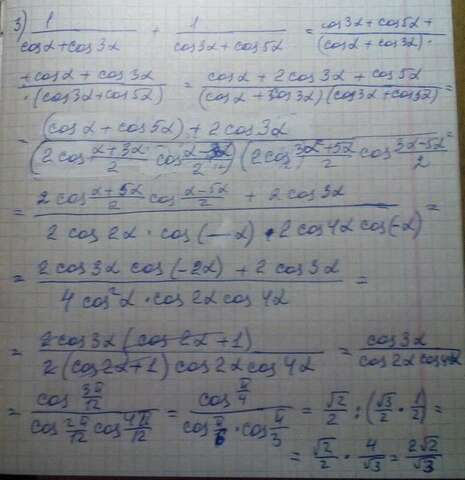 3) 1/(cosα+cos3α) + 1/(cos3α+cos5α) = (cos3α+cos5α+)/((cosα+cos3α)·
(+cosα+cos3α)/(·(cos3α+cos5α)) = (cosα+2cos3α+cos5α)/((cosα+cos3α)(cos3α+cos5α)) =
= ((cosα+cos5α)+2cos3α)/((2cos (α+3α)/2 cos (α-3α)/2)(2cos (3α+5α)/2 cos (3α-5α)/2)) =
= (2cos (α+5α)/2 cos (α-5α)/2 + 2cos3α)/(2cos2α·cos(-α)·2cos4αcos(-α)) =
= (2cos3α cos(-2α)+2cos3α)/(4cos²α·cos2αcos4α) =
= (2cos3α(cos2α+1))/(2(cos2α+1)cos2αcos4α) = cos3α/(cos2αcos4α)
= (cos 3π/12)/(cos 2π/12 cos 4π/12) = (cos π/4)/(cos π/6·cos π/3) = √2/2 : (√3/2·1/2) =
= √2/2 · 4/√3 = 2√2/√3